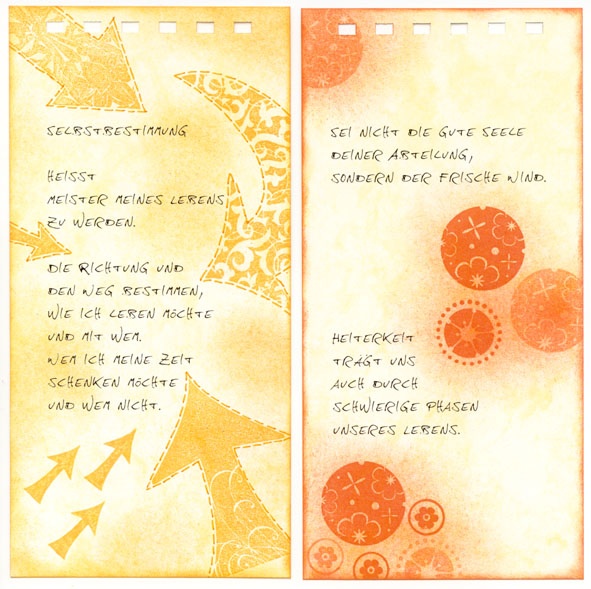 SELBSTBESTIMMUNG
HEISST
MEISTER MEINES LEBENS
ZU WERDEN.
DIE RICHTUNG UND
DEN WEG BESTIMMEN,
WIE ICH LEBEN MÖCHTE
UND MIT WEM.
WEM ICH MEINE ZEIT
SCHENKEN MÖCHTE
UND WEM NICHT.
SEI NICHT DIE GUTE SEELE
DEINER ABTEILUNG,
SONDERN DER FRISCHE WIND.
HEITERKEIT
TRÄGT UNS
AUCH DURCH
SCHWIERIGE PHASEN
UNSERES LEBENS.